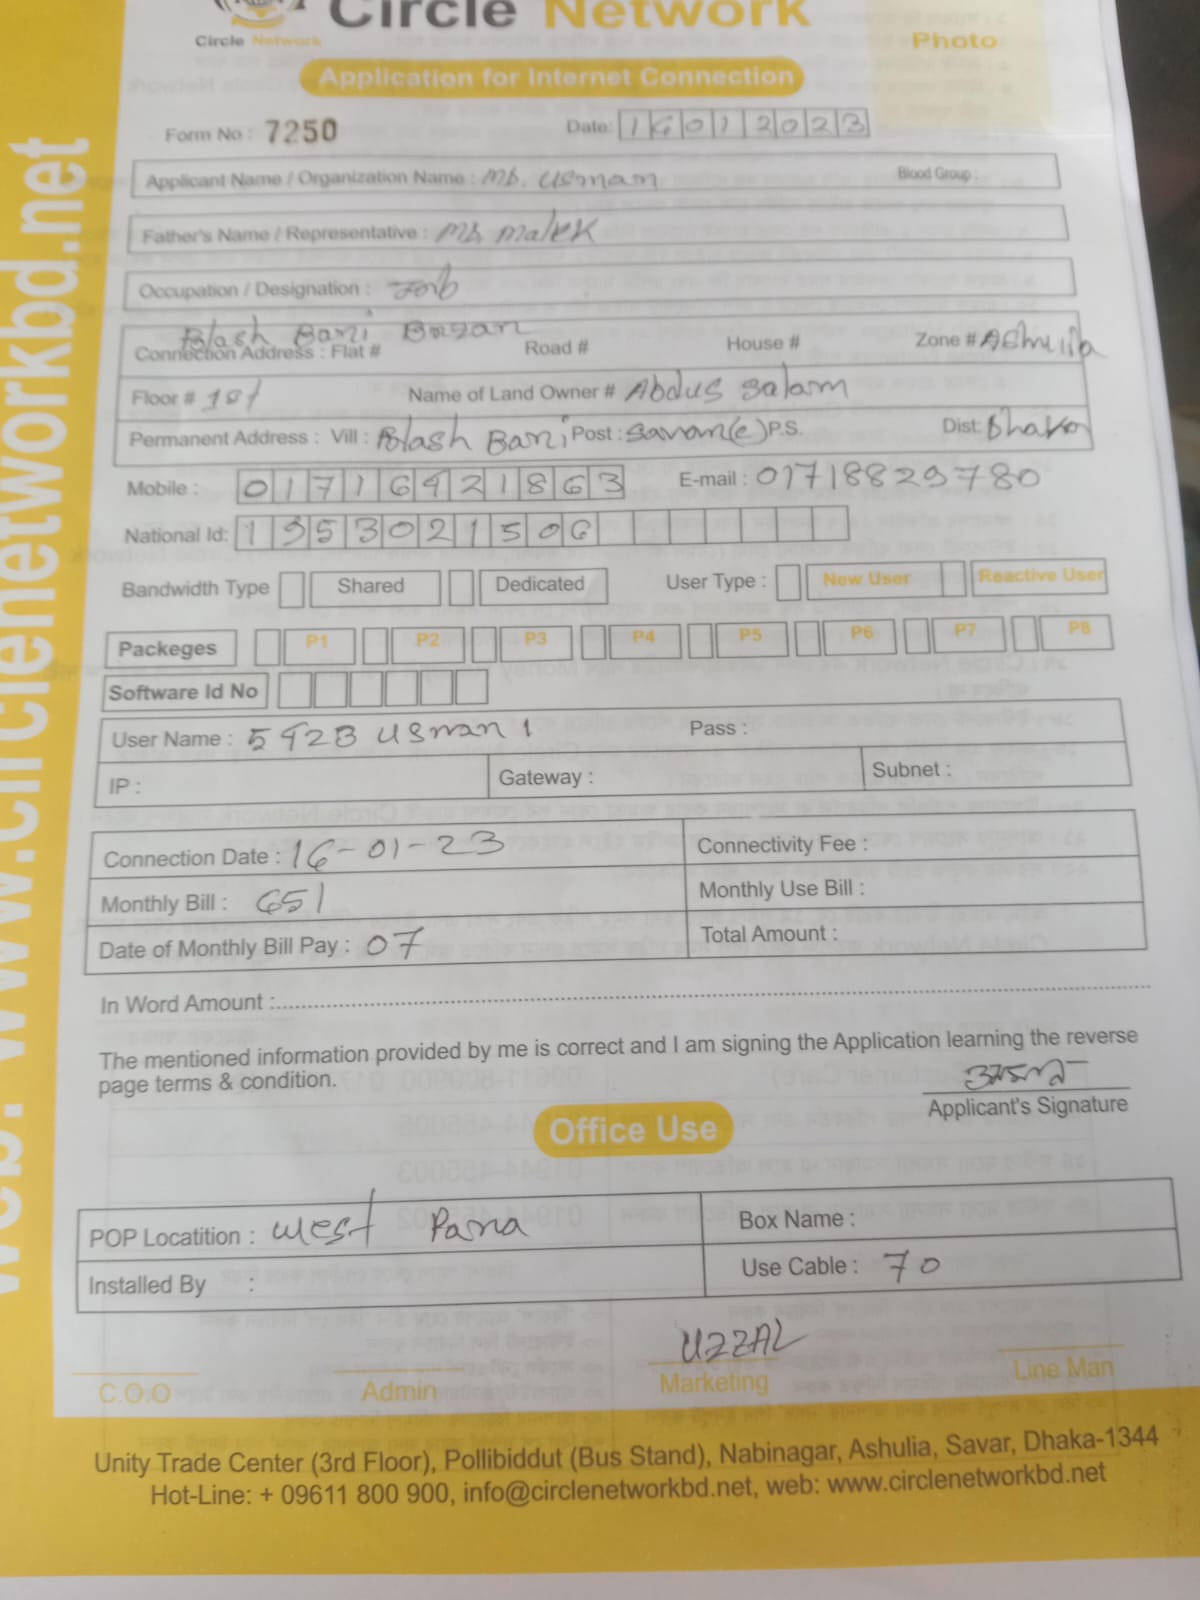 Circle Network
Circle Network
Photo
Application for Internet Connection
Form No : 7250
Date: 16012023
Applicant Name / Organization Name : MD. Usman
Blood Group :
Father's Name / Representative : MD Malek
Occupation / Designation : Job
Polash Bari Bazar
Connection Address : Flat # Road # House # Zone # Ashulia
Floor # 1st Name of Land Owner # Abdus Salam
Permanent Address : Vill : Polash Bari Post : Savar(e) P.S. Dist: Dhaka
Mobile : 01716421863 E-mail : 01718829780
National Id: 1953021506
Bandwidth Type Shared Dedicated User Type : New User Reactive User
Packeges P1 P2 P3 P4 P5 P6 P7 P8
Software Id No
User Name : 5423 Usman 1 Pass :
IP : Gateway : Subnet :
Connection Date : 16-01-23 Connectivity Fee :
Monthly Bill : 651 Monthly Use Bill :
Date of Monthly Bill Pay : 07 Total Amount :
In Word Amount :
The mentioned information provided by me is correct and I am signing the Application learning the reverse
page terms & condition.
Applicant's Signature
Office Use
POP Locatition : West Para Box Name :
Installed By : Use Cable : 70
UZZAL
C.O.O Admin Marketing Line Man
Unity Trade Center (3rd Floor), Pollibiddut (Bus Stand), Nabinagar, Ashulia, Savar, Dhaka-1344
Hot-Line: + 09611 800 900, info@circlenetworkbd.net, web: www.circlenetworkbd.net
web: www.circlenetworkbd.net